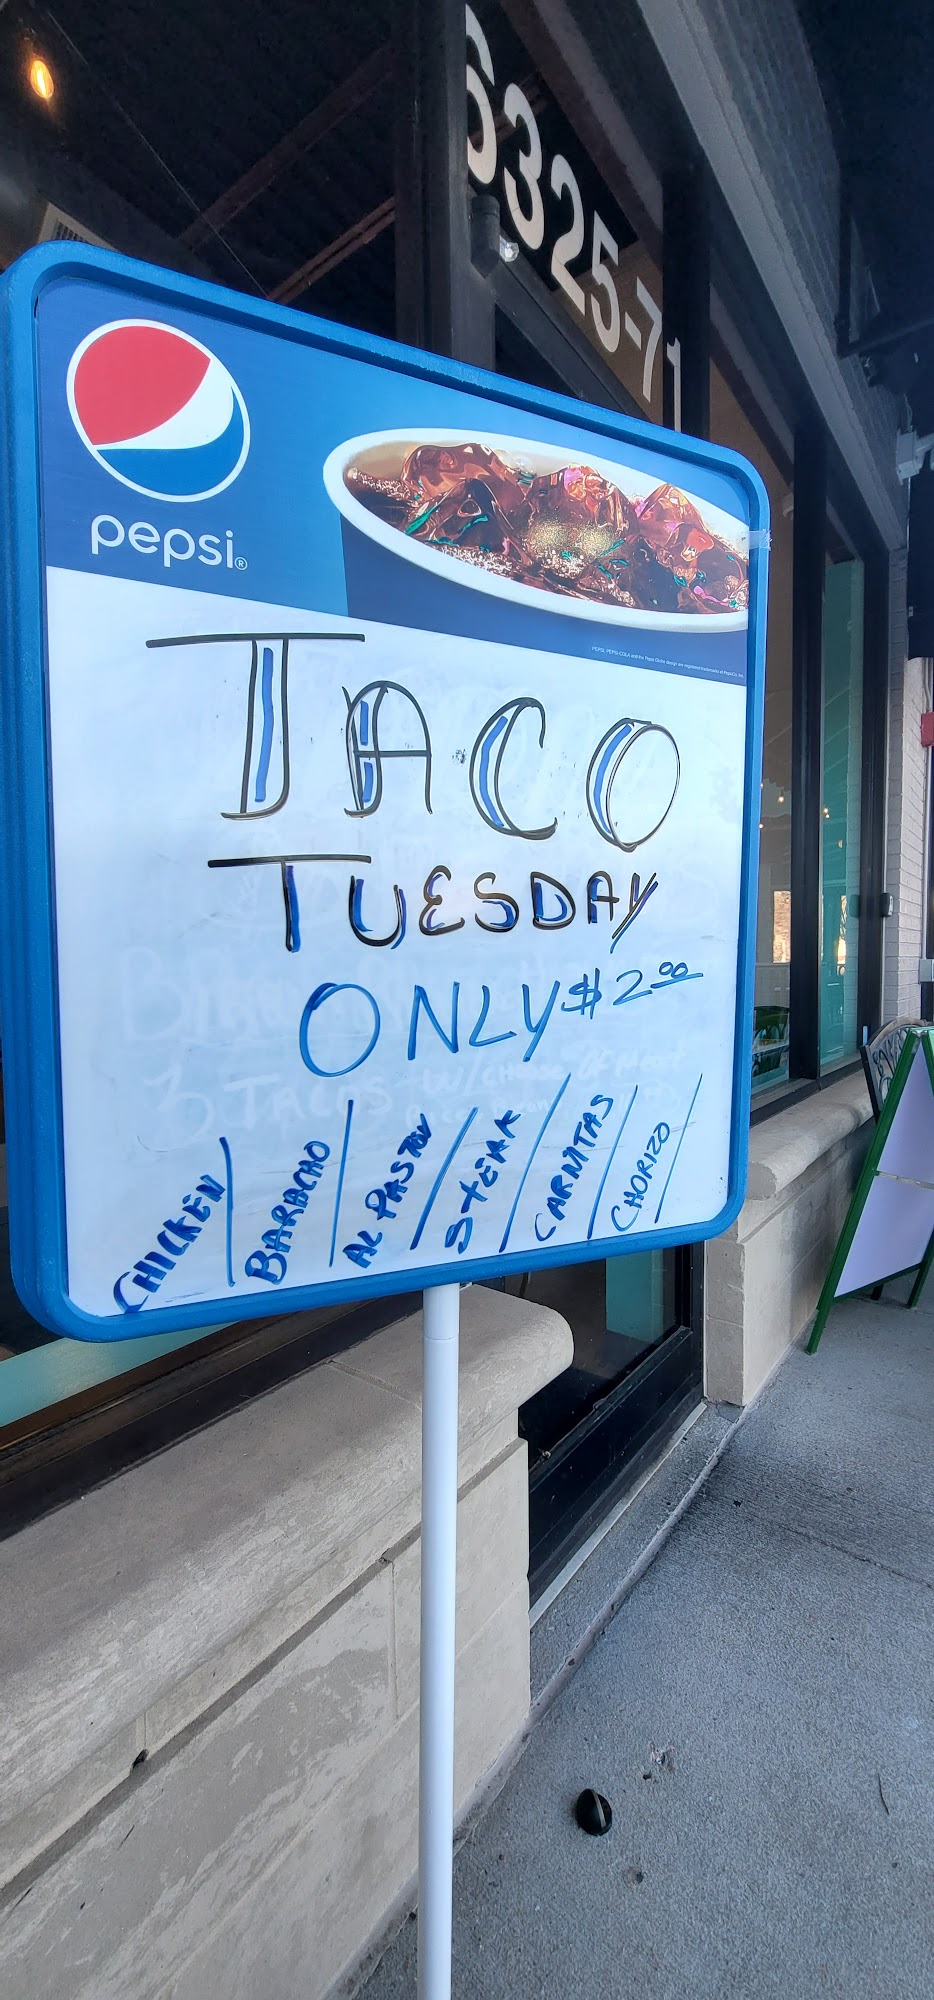 6325-71
pepsi®
PEPSI, PEPSI-COLA and the Pepsi Globe design are registered trademarks of PepsiCo, Inc.
TACO
TUESDAY
ONLY $2.00
3 TACOS W/CHOICE OF MEAT
CHICKEN / BARACHO / AL PASTOR / STEAK / CARNITAS / CHORIZO /